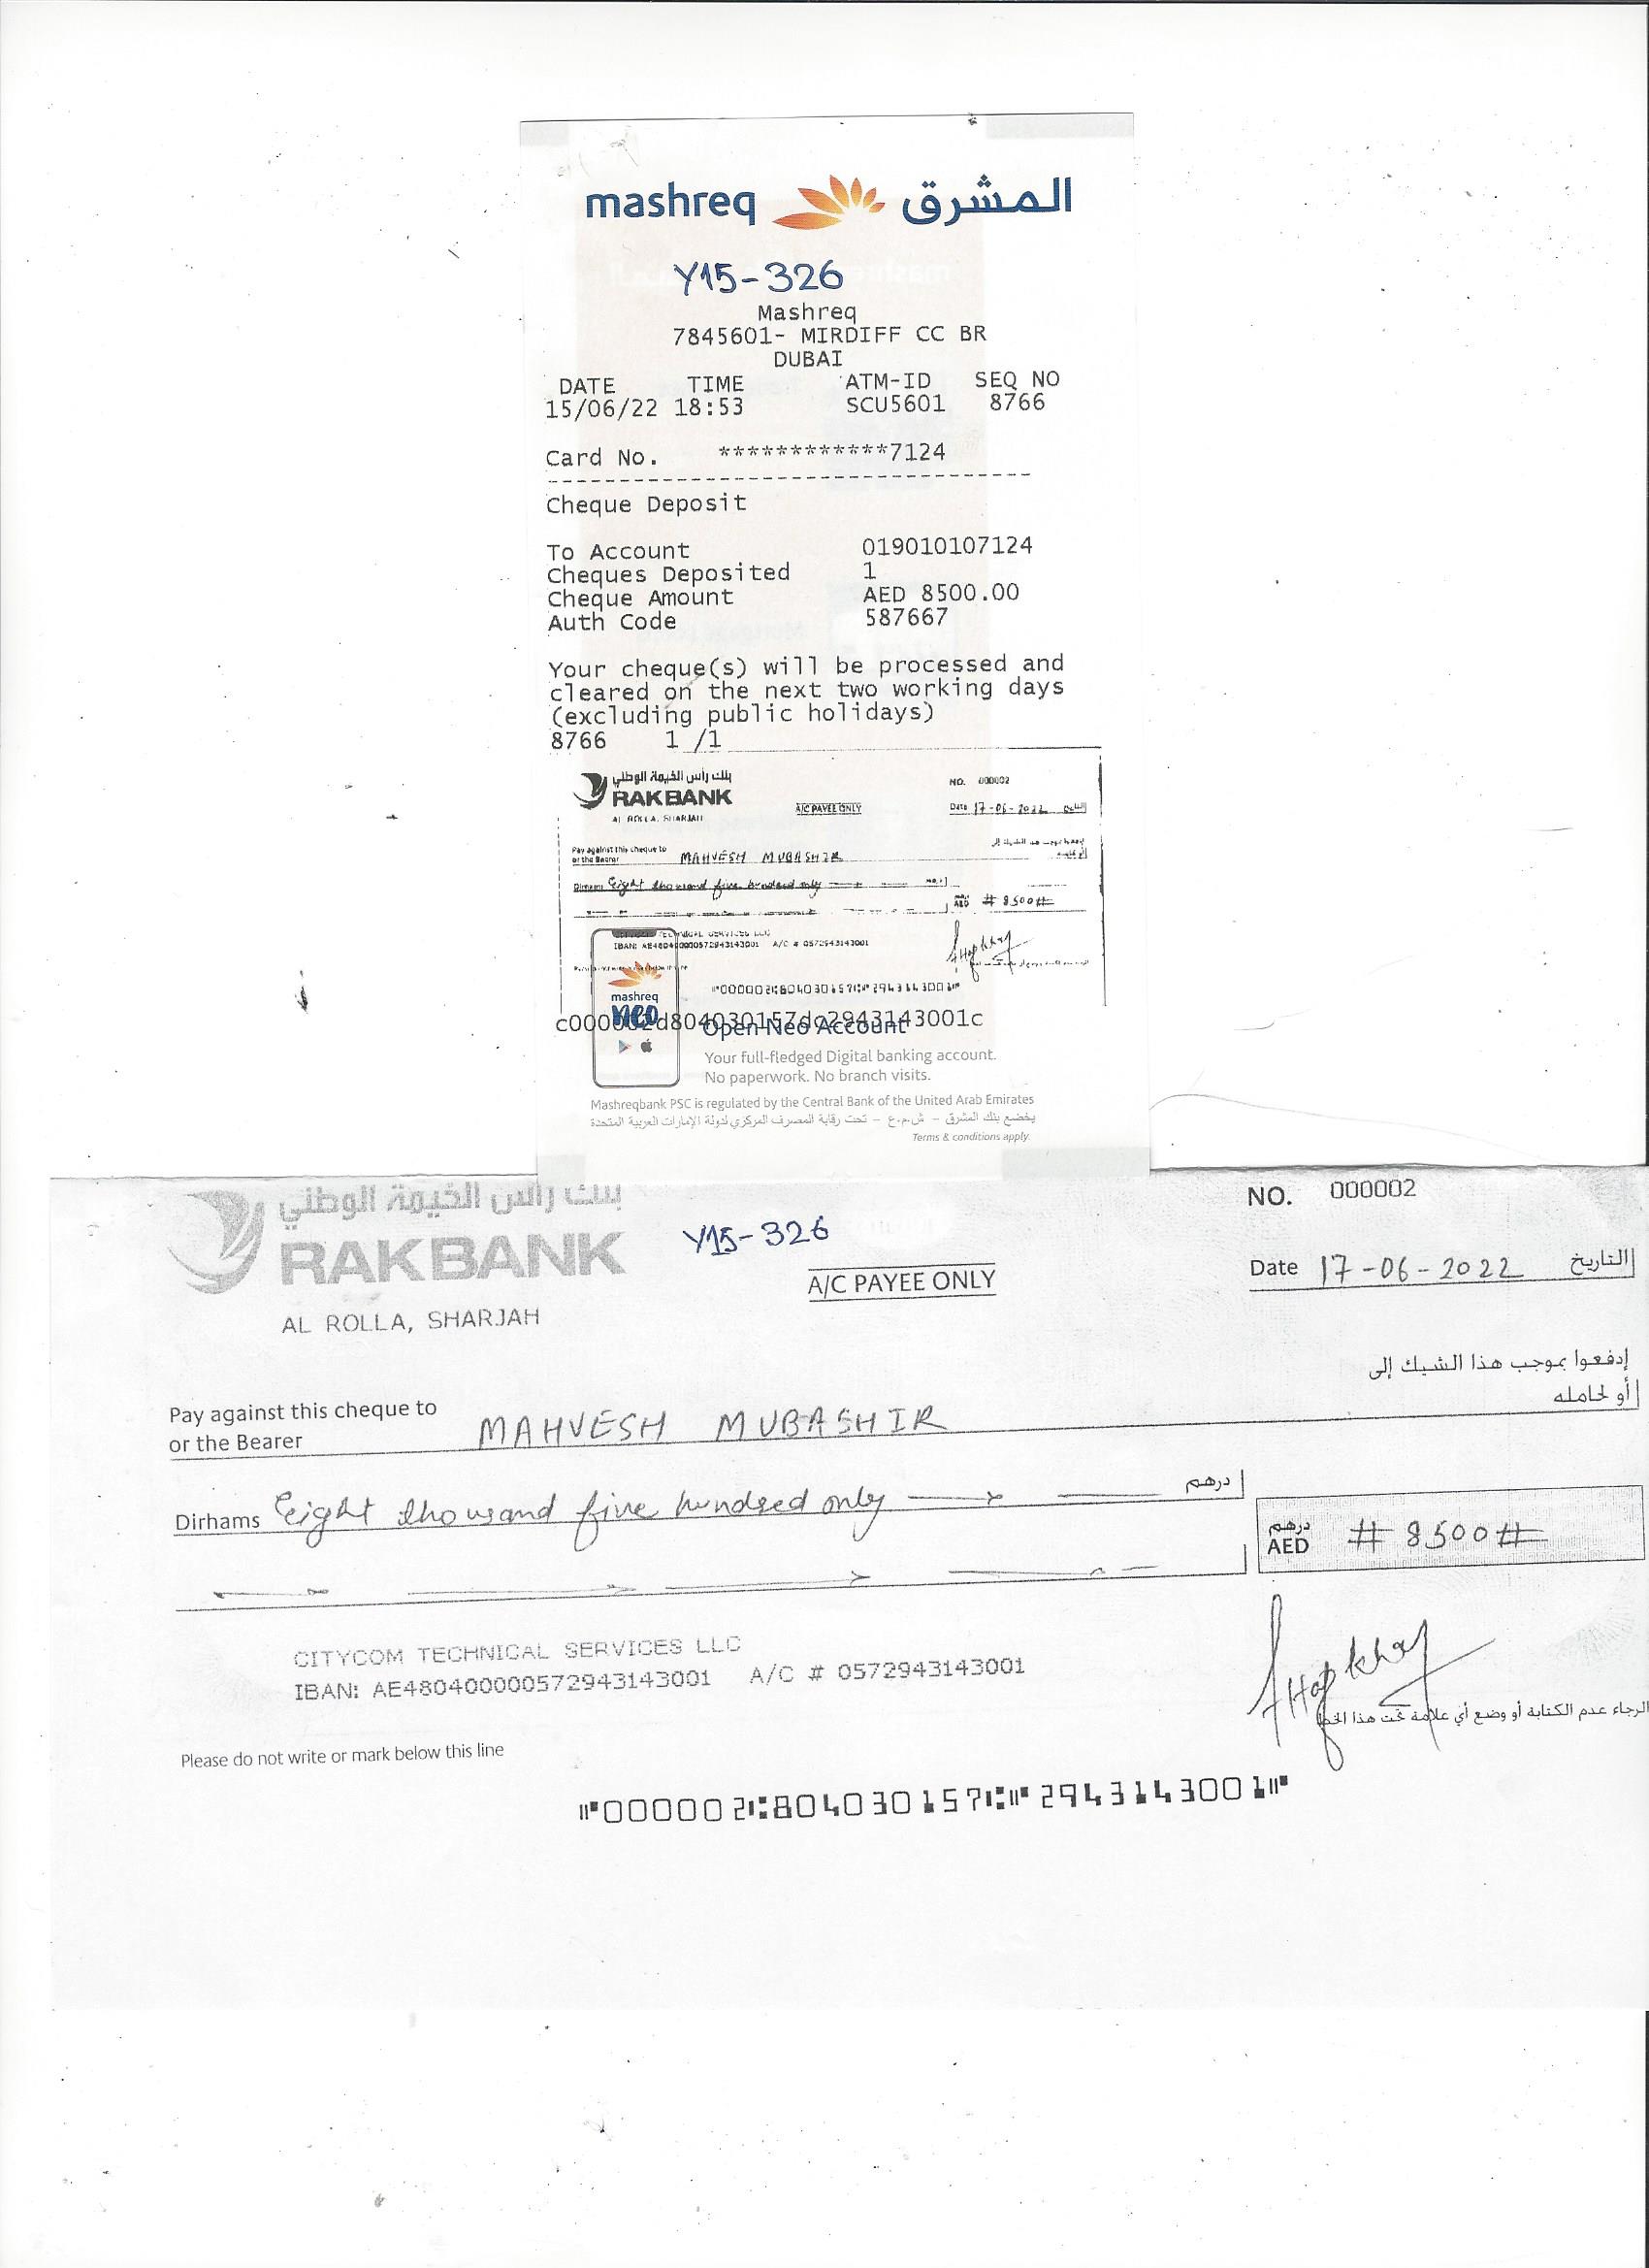 mashreq المشرق
Y15-326
Mashreq
7845601- MIRDIFF CC BR
DUBAI
DATE TIME ATM-ID SEQ NO
15/06/22 18:53 SCU5601 8766
Card No. ************7124
--------------------------------
Cheque Deposit
To Account 019010107124
Cheques Deposited 1
Cheque Amount AED 8500.00
Auth Code 587667
Your cheque(s) will be processed and
cleared on the next two working days
(excluding public holidays)
8766 1 /1
بنك رأس الخيمة الوطني
RAKBANK
NO. 000002
A/C PAYEE ONLY
Date 17-06-2022
AL ROLLA, SHARJAH
Pay against this cheque to
or the Bearer MAHVESH MUBASHIR
Dirhams Eight thousand five hundred only
AED # 8500#
IBAN: AE480400000572943143001 A/C # 0572943143001
⑈000002⑆804030157⑆⑈2943143001⑈
mashreq
neo
c000002d804030157dc2943143001c
Open Neo Account
Your full-fledged Digital banking account.
No paperwork. No branch visits.
Mashreqbank PSC is regulated by the Central Bank of the United Arab Emirates
يخضع بنك المشرق – ش.م.ع – تحت رقابة المصرف المركزي لدولة الإمارات العربية المتحدة
Terms & conditions apply.
بنك رأس الخيمة الوطني
RAKBANK
Y15-326
NO. 000002
A/C PAYEE ONLY
Date 17-06-2022 التاريخ
AL ROLLA, SHARJAH
إدفعوا بموجب هذا الشيك إلى
أو لحامله
Pay against this cheque to
or the Bearer MAHVESH MUBASHIR
Dirhams Eight thousand five hundred only درهم
درهم
AED # 8500#
CITYCOM TECHNICAL SERVICES LLC
IBAN: AE480400000572943143001 A/C # 0572943143001
الرجاء عدم الكتابة أو وضع أي علامة تحت هذا الخط
Please do not write or mark below this line
⑈000002⑆804030157⑆⑈2943143001⑈